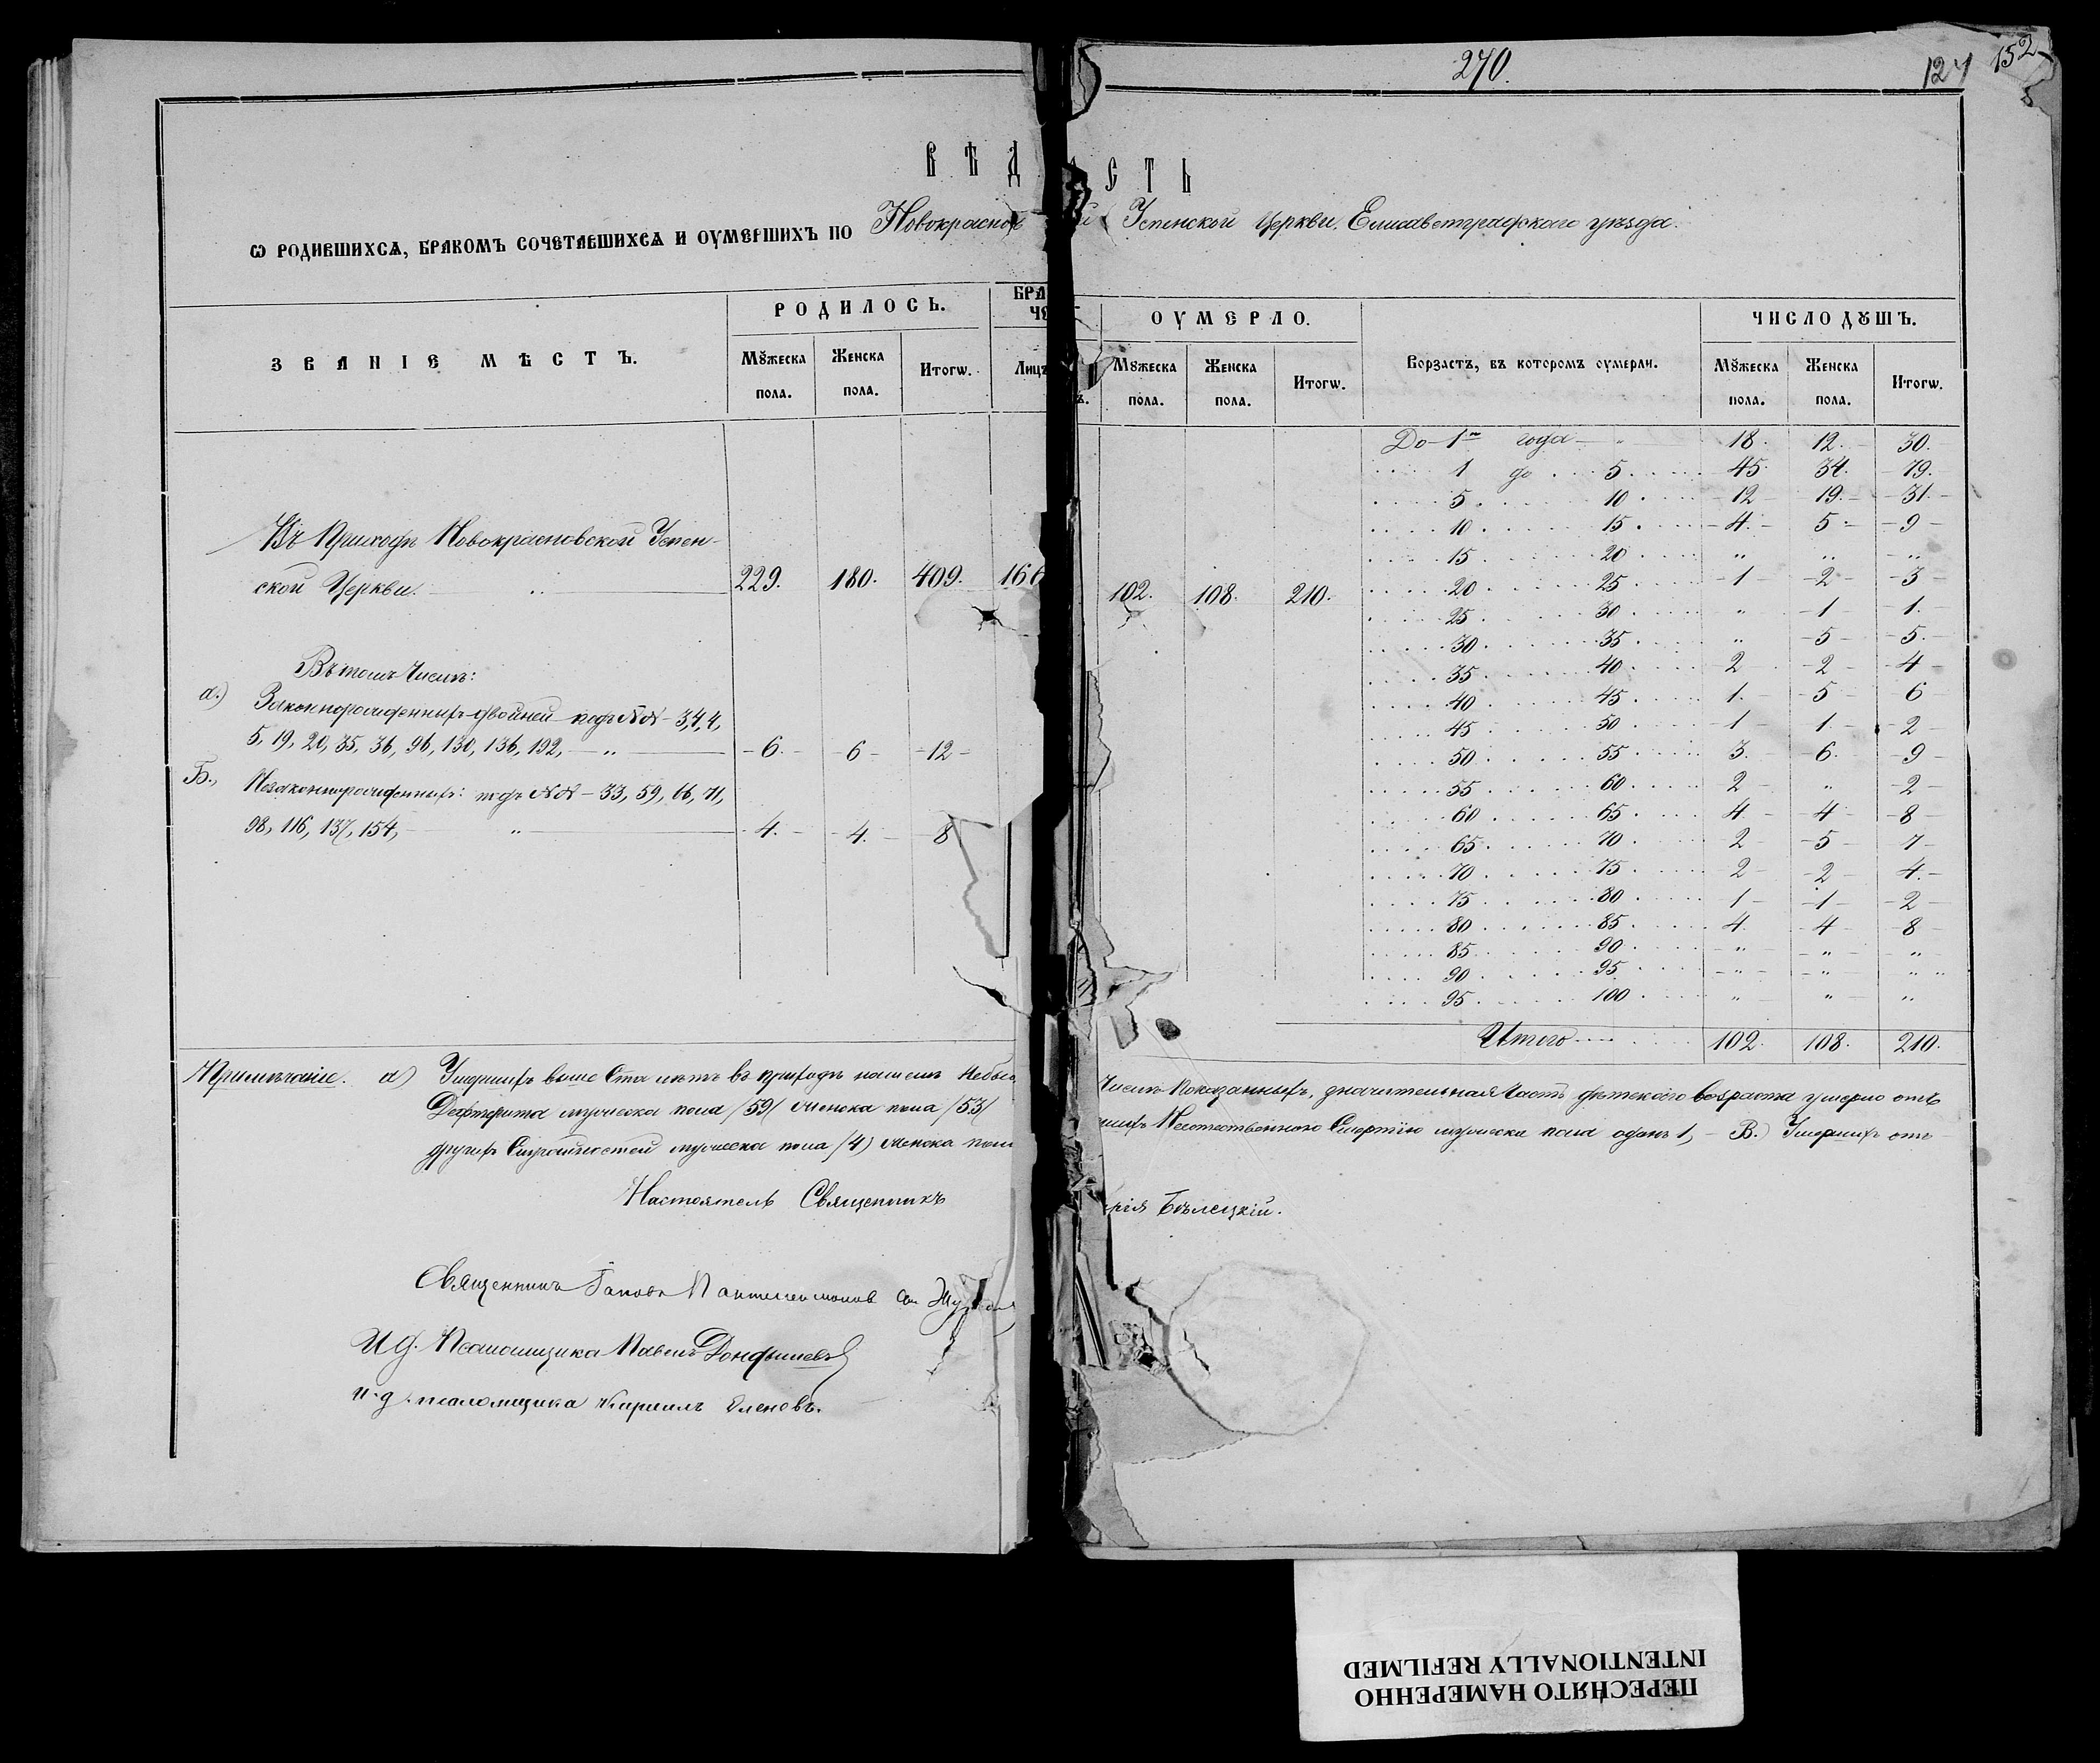 270.
124 152
ВѢД ОСТЬ
Ѡ РОДИВШИХСѦ, БРАКОМЪ СОЧЕТАВШИХСѦ И ОУМЕРШИХЪ ПО Новокраснов й Успенской Церкви, Елисаветградскаго уѣзда.
ЗВАНІЕ МѢСТЪ.
РОДИЛОСЬ.
Мꙋжеска пола.
Женска пола.
Итогѡ.
БРА
ЧЕ
Лицъ
ОУМЕРЛО.
Мꙋжеска пола.
Женска пола.
Итогѡ.
Ворзастъ, въ которомъ оумерли.
ЧИСЛО ДꙊШЪ.
Мꙋжеска пола.
Женска пола.
Итогѡ.
Въ Приходѣ Новокрасновской Успен-
ской Церкви. 229. 180. 409. 166 102. 108. 210.
Въ томъ Числѣ:
а.) Законнорожденныхъ двойней подъ №№ – 3, 4, 4,
5, 19, 20, 35, 36, 96, 130, 136, 192, – „ – 6. – 6 – 12 –
Б., Незаконнорожденныхъ: подъ №№ – 33, 59, 66, 71,
98, 116, 137, 154, – „ – 4. – 4. – 8
До 1го года – „ 18. 12. 30.
1 до 5 45. 34. 79.
5 10 12 19. 31.
10 15 4. 5. 9
15 20 „ „ „
20 25 1 2 3
25 30 „ 1 1.
30 35 „ 5 5.
35 40 2 2 4
40 45 1. 5 6
45 50 1 1. 2
50 55 3. 6. 9
55 60 2 „ 2
60 65 4 4 8
65 70 2 5 7
70 75 2 2 4.
75 80 1 1 2
80 85 4. 4 8
85 90 „ „ „
90 95 „ „ „
95 100 „ „ „
Итого 102. 108. 210.
Примѣчаніе. а) Умершихъ выше Ста лѣтъ въ приходѣ нашемъ Небыло Числѣ Показанныхъ, значительная Часть дѣтскаго возраста умерло отъ
Дифтерита мужеска пола /59/ женска пола /53/ шихъ Неестественною Смертію мужеска пола одинъ 1, – В.) Умершихъ отъ
другихъ Случайностей мужеска пола /4) женска пола
Настоятель Священникъ рій Бѣлецкій.
Священникъ Іаковъ Пантелеимонов
И д. Псаломщика Павелъ
и. д. псаломщика Кириллъ Еленовъ.
ПЕРЕСНЯТО НАМЕРЕННО
INTENTIONALLY REFILMED